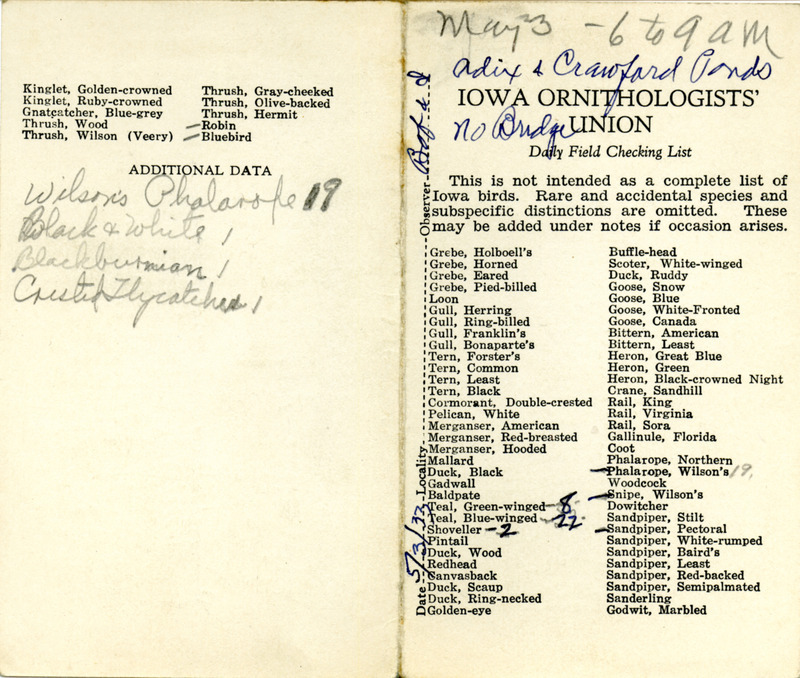 Kinglet, Golden-crowned
Kinglet, Ruby-crowned
Gnatcatcher, Blue-grey
Thrush, Wood
Thrush, Wilson (Veery)
Thrush, Gray-cheeked
Thrush, Olive-backed
Thrush, Hermit
—Robin
—Bluebird
ADDITIONAL DATA
Wilson's Phalarope 19
Black & White 1
Blackburnian 1
Crested Flycatcher 1
May 3 - 6 to 9 a m
Adix & Crawford Ponds
IOWA ORNITHOLOGISTS'
No Bridge UNION
Daily Field Checking List
This is not intended as a complete list of
Iowa birds. Rare and accidental species and
subspecific distinctions are omitted. These
may be added under notes if occasion arises.
Date 5/3/33 Locality Observer
Grebe, Holboell's
Grebe, Horned
Grebe, Eared
Grebe, Pied-billed
Loon
Gull, Herring
Gull, Ring-billed
Gull, Franklin's
Gull, Bonaparte's
Tern, Forster's
Tern, Common
Tern, Least
Tern, Black
Cormorant, Double-crested
Pelican, White
Merganser, American
Merganser, Red-breasted
Merganser, Hooded
Mallard
Duck, Black
Gadwall
Baldpate
Teal, Green-winged — 8
Teal, Blue-winged — 22
Shoveller — 2
Pintail
Duck, Wood
Redhead
Canvasback
Duck, Scaup
Duck, Ring-necked
Golden-eye
Buffle-head
Scoter, White-winged
Duck, Ruddy
Goose, Snow
Goose, Blue
Goose, White-Fronted
Goose, Canada
Bittern, American
Bittern, Least
Heron, Great Blue
Heron, Green
Heron, Black-crowned Night
Crane, Sandhill
Rail, King
Rail, Virginia
Rail, Sora
Gallinule, Florida
Coot
Phalarope, Northern
—Phalarope, Wilson's 19.
Woodcock
—Snipe, Wilson's
Dowitcher
Sandpiper, Stilt
—Sandpiper, Pectoral
Sandpiper, White-rumped
Sandpiper, Baird's
Sandpiper, Least
Sandpiper, Red-backed
Sandpiper, Semipalmated
Sanderling
Godwit, Marbled